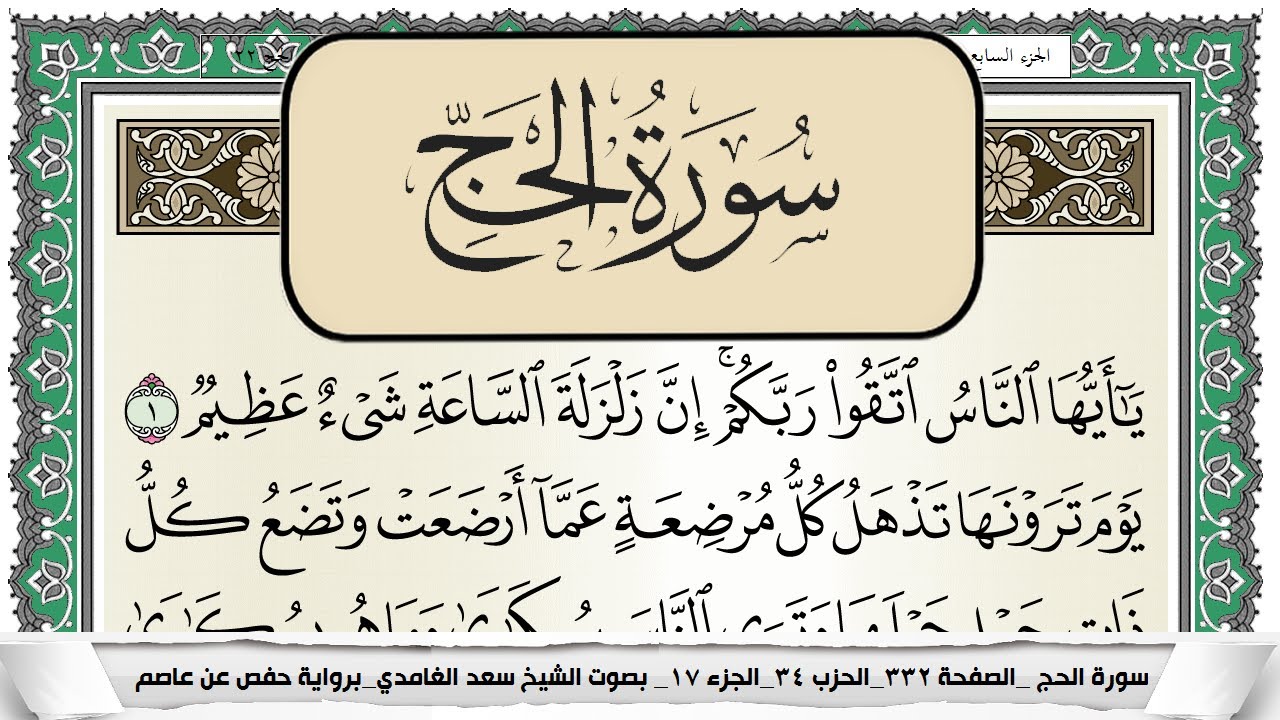 الجزء السابع
سُورَةُ الحَجِّ
يَٰٓأَيُّهَا ٱلنَّاسُ ٱتَّقُوا۟ رَبَّكُمْ ۚ إِنَّ زَلْزَلَةَ ٱلسَّاعَةِ شَىْءٌ عَظِيمٌ ١
يَوْمَ تَرَوْنَهَا تَذْهَلُ كُلُّ مُرْضِعَةٍ عَمَّآ أَرْضَعَتْ وَتَضَعُ كُلُّ
سورة الحج _الصفحة ٣٣٢_الحزب ٣٤_الجزء ١٧_ بصوت الشيخ سعد الغامدي_برواية حفص عن عاصم